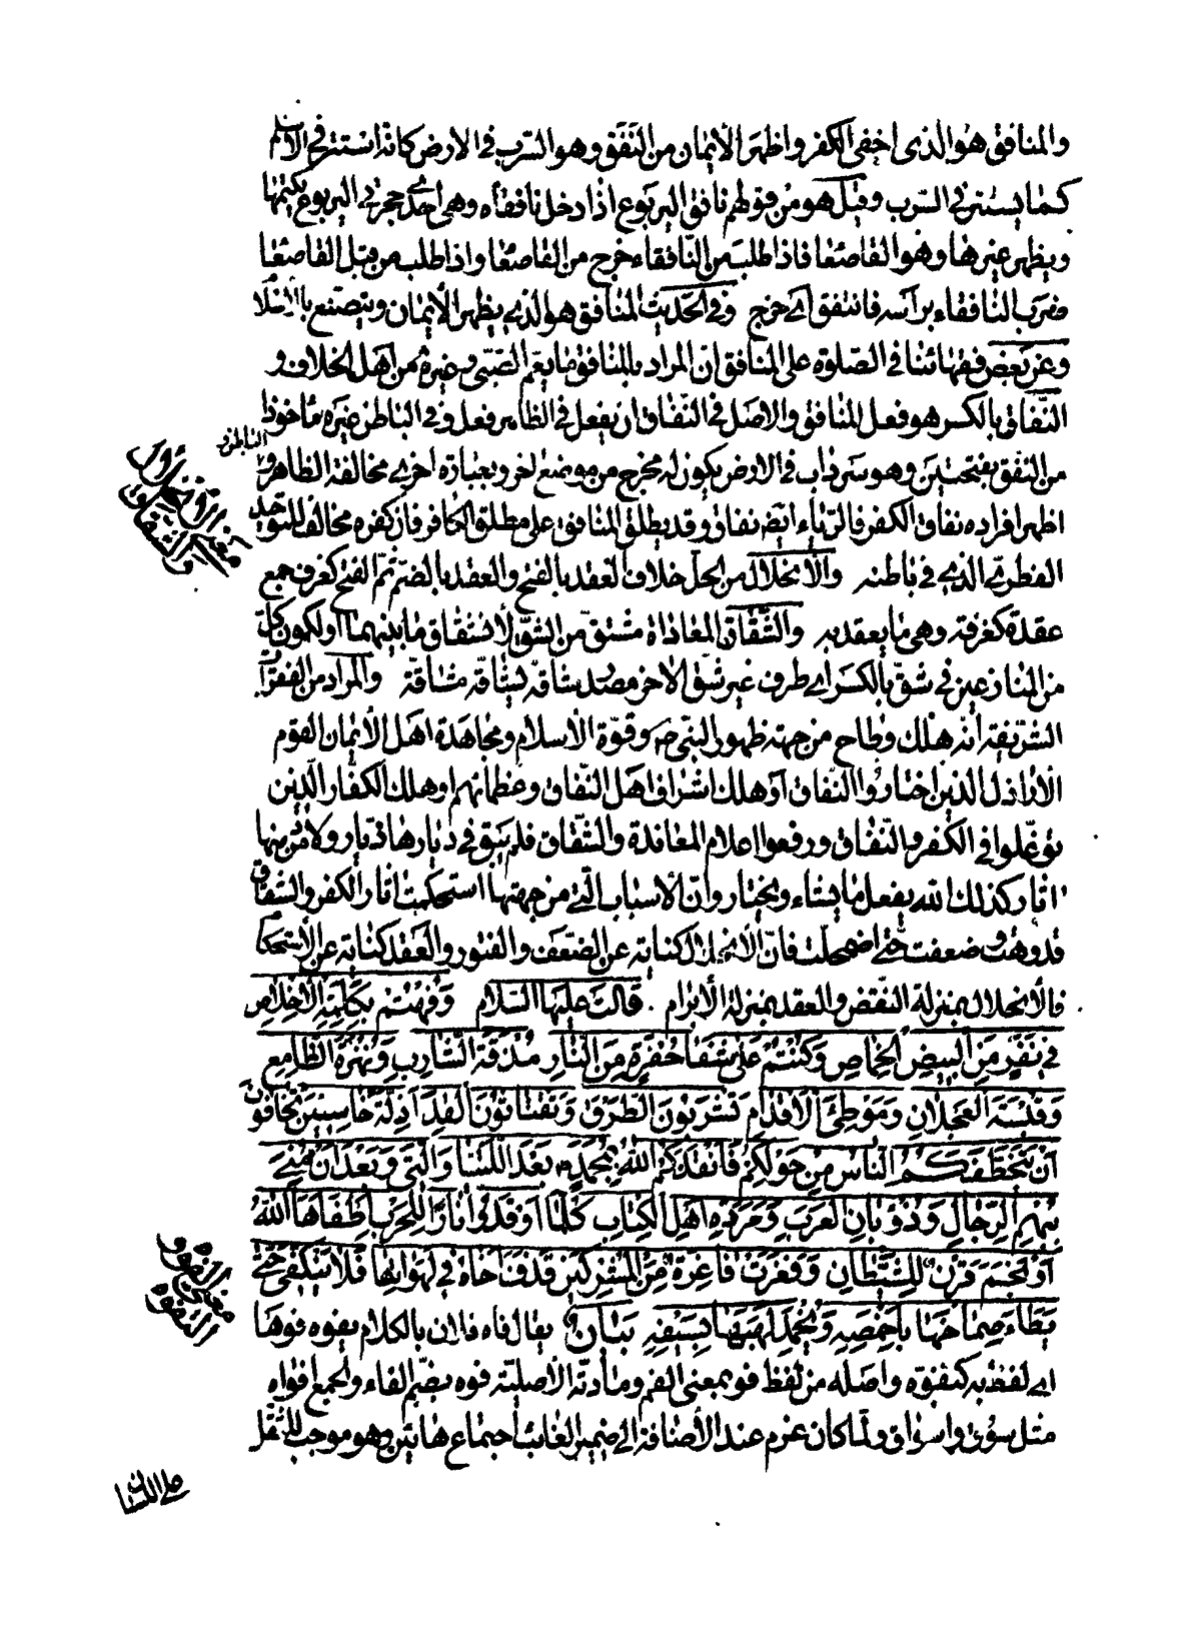 والمنافق هو الذي اخفى الكفر واظهر الايمان من النفق وهو السرب في الارض كانه استتر في الاسلام
كما يستتر في السرب وقيل هو من قولهم نافق اليربوع اذا دخل نافقاه وهي احدى حجرتي اليربوع يكتمها
ويظهر غيرها وهو القاصعا فاذا طلب من النافقاء خرج من القاصعا واذا طلب من قبل القاصعا
ضرب النافقاء براسه فانتفق اي خرج وفي الحديث المنافق هو الذي يظهر الايمان ويتصنع بالاسلام
وعن بعض فقهائنا في الصلوة على المنافق ان المراد بالمنافق ما يعم الصبي وغيره من اهل الخلاف و
النفاق بالكسر هو فعل المنافق والاصل في النفاق ان يفعل في الظاهر فعل وفي الباطن غيره ماخوذا
من النفق بفتحتين وهو سرداب في الارض يكون له مخرج من موضع اخر وبعبارة اخرى مخالفة الظاهر والباطن و
اظهر افراده نفاق الكفر فالرياء ايضا نفاق وقد يطلق المنافق على مطلق الكافر فان كفره مخالف للتوحيد
الفطري الذي في باطنه والانحلال من الحل خلاف العقد بالفتح والعقد بالضم ثم الفتح كغرف جمع
عقدة كغرفة وهي ما يعقد به والشقاق المعاداة مشتق من الشق لانشقاق ما بينهما او لكون كل
من المنازعين في شق بالكسر اي طرف غير شق الاخر مصدر شاقه يشاقه مشاقة والمراد من الفقرات
الشريفة انه هلك وطاح من جهة ظهور النبي ص وقوة الاسلام ومجاهدة اهل الايمان القوم
الاراذل الذين اختاروا النفاق او هلك اشراف اهل النفاق وعظمائهم او هلك الكفار الذين
توغلوا في الكفر والنفاق ورفعوا اعلام المعاندة والشقاق فلم يبق في ديارها ديار ولا من منها
اثار كذلك الله يفعل ما يشاء ويختار وان الاسباب التي من جهتها استحكمت اثار الكفر والشقاق
قد وهنت وضعفت حتى اضمحلت فان الانحلال كناية عن الضعف والفتور والعقد كناية عن الاستحكام
فالانحلال بمنزلة النقض والعقد بمنزلة الابرام . قَالَتْ عَلَيْهَا السَّلام وَفُهْتُمْ بِكَلِمَةِ الْاِخْلاصِ
في نَفَرٍ مِنَ الْبيضِ الْخِماصِ وَكُنْتُمْ عَلى شَفا حُفْرَةٍ مِنَ النّارِ مُذْقَةَ الشّارِبِ وَنُهْزَةَ الطّامِعِ
وَقَبْسَةَ الْعَجْلانِ وَمَوْطِئَ الْاَقْدامِ تَشْرَبُونَ الطَّرْقَ وَتَقْتاتُونَ الْقِدَّ اَذِلَّةً خاسِئينَ تَخافُونَ
اَنْ يَتَخَطَّفَكُمُ النّاسُ مِنْ حَوْلِكُمْ فَاَنْقَذَكُمُ اللهُ بِمُحَمَّدٍ ص بَعْدَ اللَّتَيّا وَالَّتي وَبَعْدَ اَنْ مُنِيَ
بِبُهَمِ الرِّجالِ وَذُؤْبانِ الْعَرَبِ وَمَرَدَةِ اَهْلِ الْكِتابِ كُلَّما اَوْقَدُوا نارًا لِلْحَرْبِ اَطْفَاَهَا اللهُ
اَوْ نَجَمَ قَرْنٌ لِلشَّيْطانِ وَفَغَرَتْ فاغِرَةٌ مِنَ الْمُشْرِكينَ قَذَفَ اَخاهُ في لَهَواتِها فَلا يَنْكَفِئُ حَتّى
يَطَاَ صِماخَها بِاَخْمَصِهِ وَيُخْمِدَ لَهَبَها بِسَيْفِهِ بَيان يقال فاه فلان بالكلام يفوه فوها
اي لفظ به كتفوه واصله من لفظ فو بمعنى الفم ومادته الاصلية فوه بضم الفاء والجمع افواه
مثل سوق واسواق ولما كان عندهم عند الاضافة الى ضمير الغائب اجتماع هائين وهو موجب للثقل
على اللسان